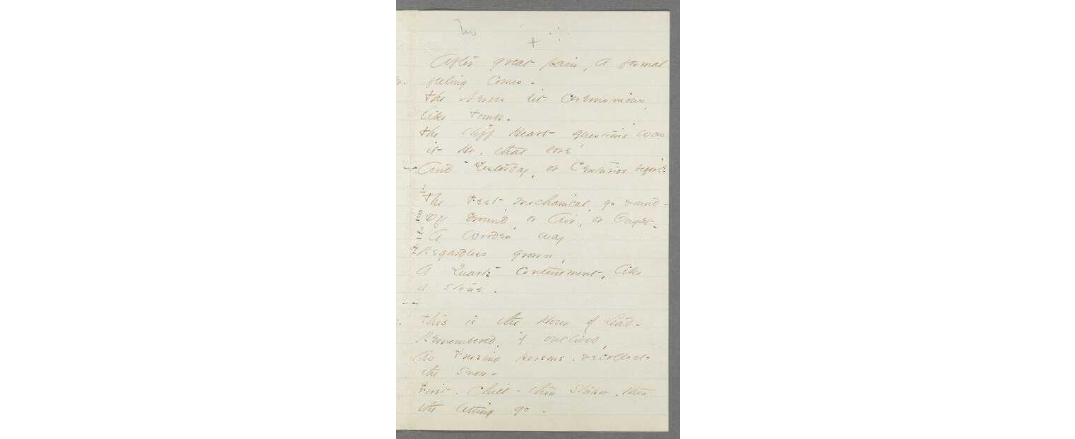 After great pain, a formal
feeling comes -
The Nerves sit ceremonious,
like Tombs -
The stiff Heart questions was
it He, that bore,
And Yesterday, or Centuries before?
The Feet, mechanical, go round -
Of Ground, or Air, or Ought -
A Wooden way
Regardless grown,
A Quartz contentment, like
a stone -
This is the Hour of Lead -
Remembered, if outlived,
As Freezing persons, recollect
the Snow -
First - Chill - then Stupor - then
the letting go -